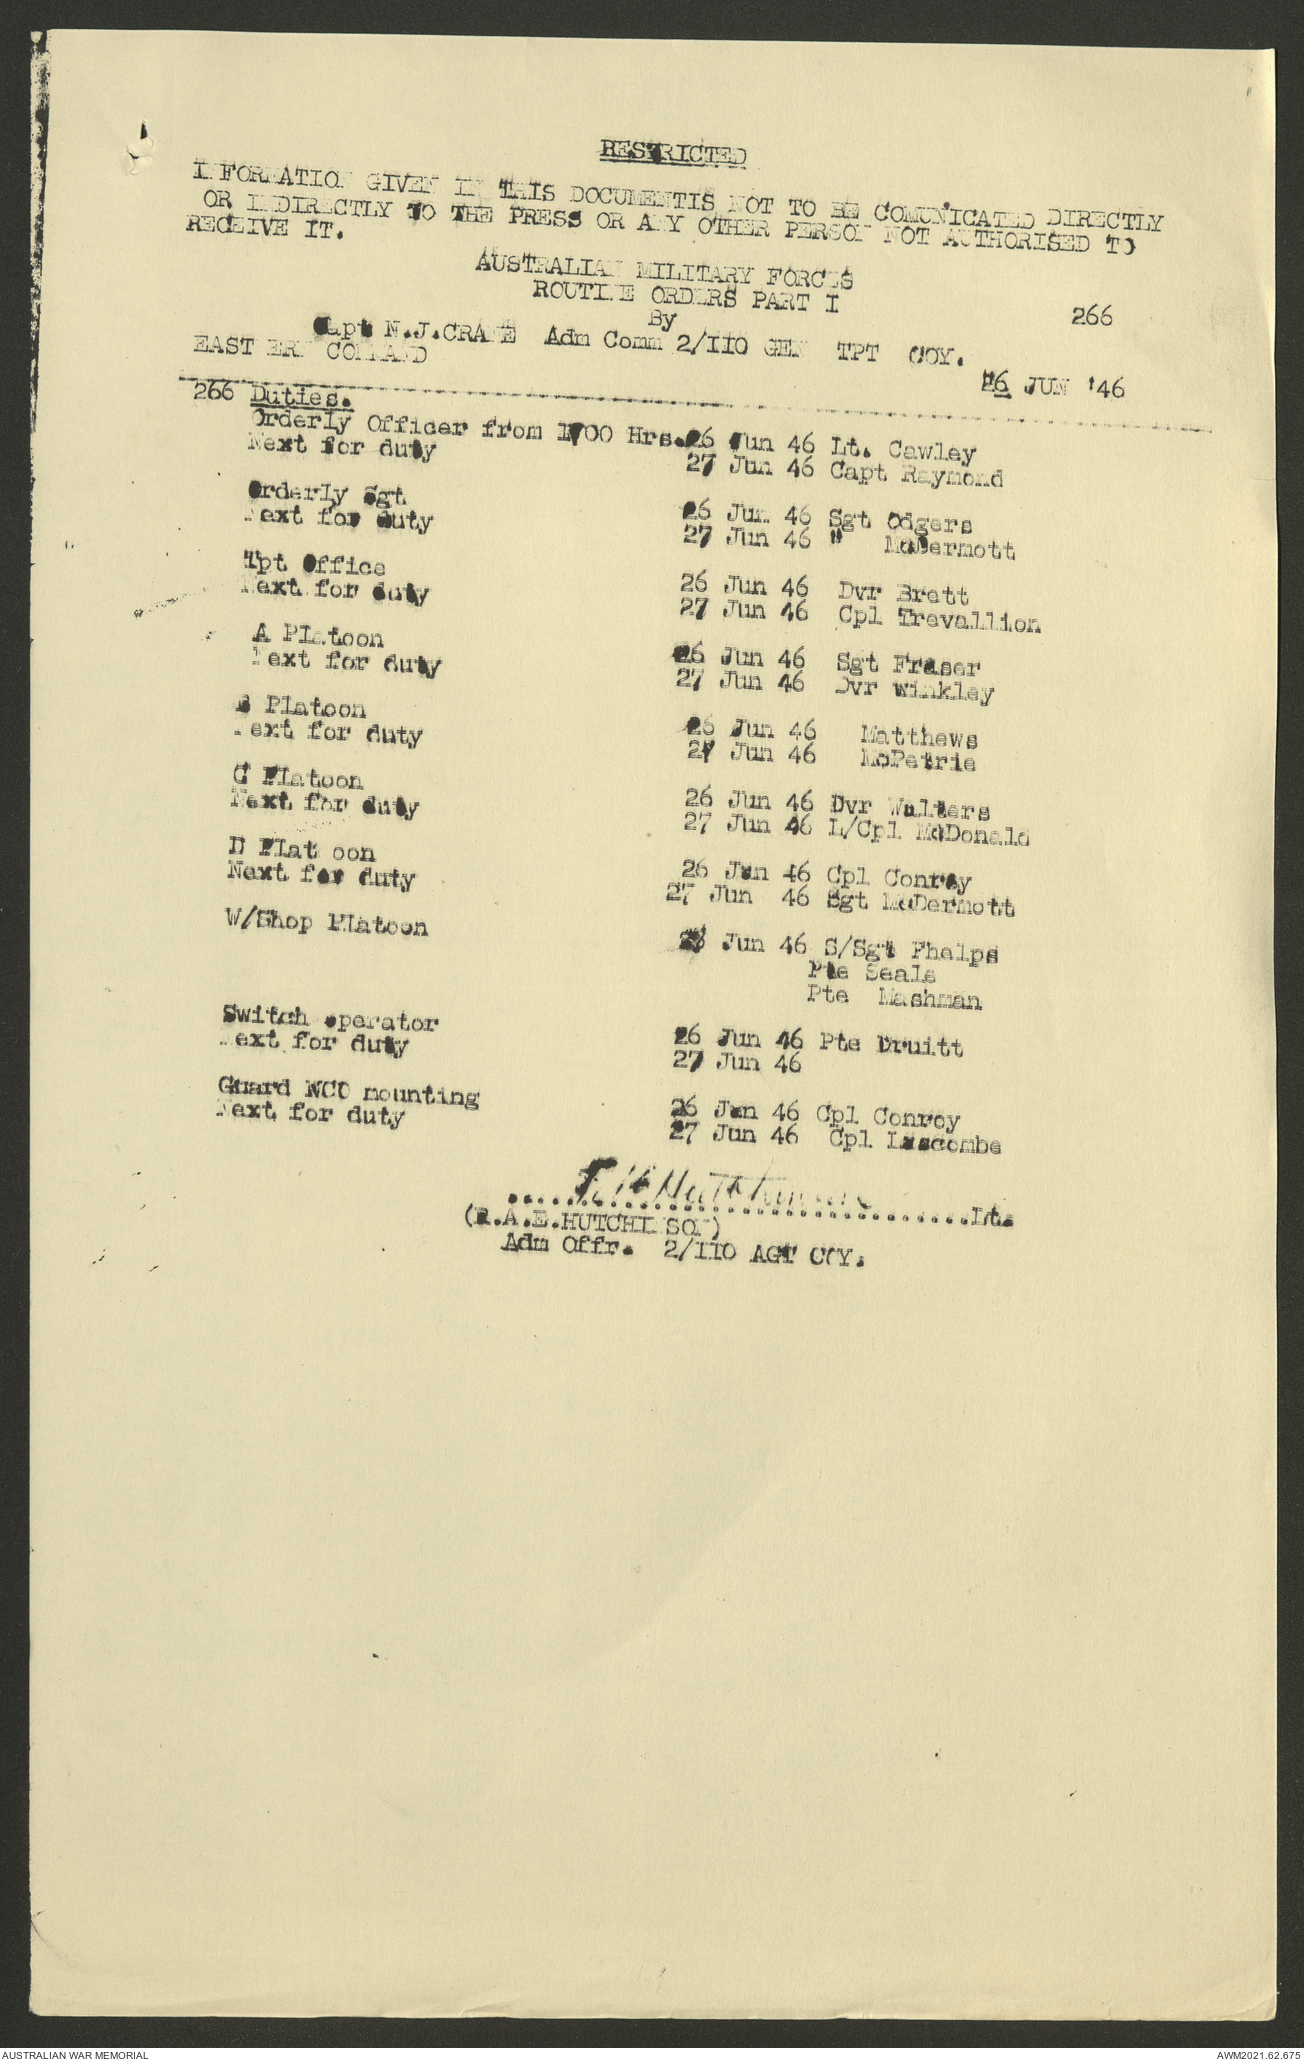 RESTRICTED
INFORMATION GIVEN IN THIS DOCUMENTIS NOT TO BE COMUNICATED DIRECTLY
OR INDIRECTLY TO THE PRESS OR ANY OTHER PERSON NOT AUTHORISED TO
RECEIVE IT.
AUSTRALIAN MILITARY FORCES
ROUTINE ORDERS PART I
By 266
Capt N.J.CRANE Adm Comm 2/110 GEN TPT COY.
EAST ERN COMMAND
26 JUN '46
266 Duties.
Orderly Officer from 1700 Hrs. 26 Jun 46 Lt. Cawley
Next for duty 27 Jun 46 Capt Raymond
Orderly Sgt 26 Jun 46 Sgt Odgers
Next for duty 27 Jun 46 " McDermott
Tpt Office 26 Jun 46 Dvr Brett
Next for duty 27 Jun 46 Cpl Trevallion
A Platoon 26 Jun 46 Sgt Fraser
Next for duty 27 Jun 46 Dvr Winkley
B Platoon 26 Jun 46 Matthews
Next for duty 27 Jun 46 McPetrie
C Platoon 26 Jun 46 Dvr Walters
Next for duty 27 Jun 46 L/Cpl McDonald
D Plat oon 26 Jun 46 Cpl Conroy
Next for duty 27 Jun 46 Sgt McDermott
W/Shop Platoon Jun 46 S/Sgt Phelps
Pte Seals
Pte Mashman
Switch operator 26 Jun 46 Pte Druitt
Next for duty 27 Jun 46
Guard NCO mounting 26 Jun 46 Cpl Conroy
Next for duty 27 Jun 46 Cpl Luscombe
..................................Lt.
(R.A.E.HUTCHINSON)
Adm Offr. 2/110 AGT COY.
AUSTRALIAN WAR MEMORIAL AWM2021.62.675